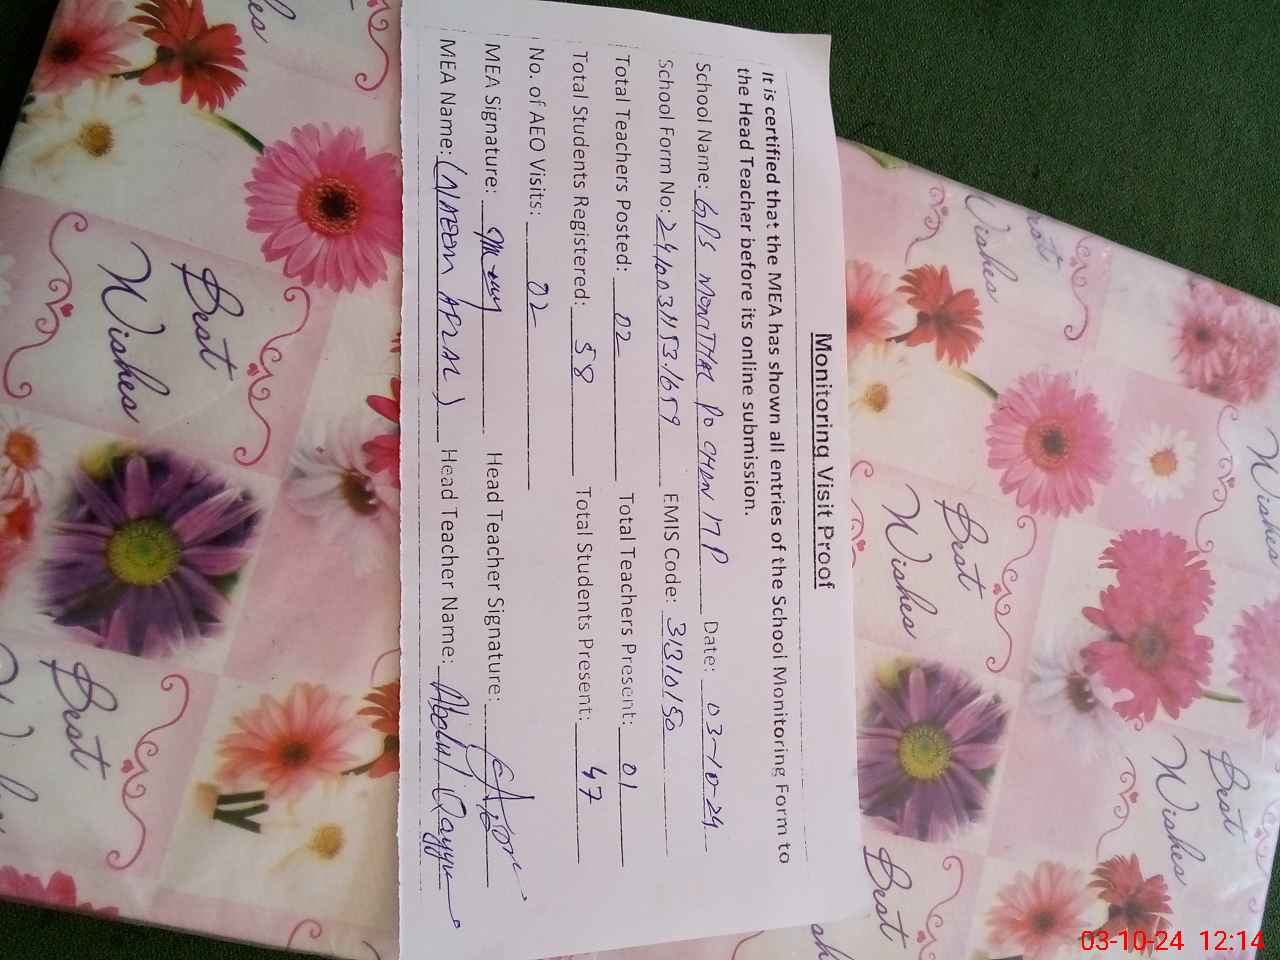 Monitoring Visit Proof
It is certified that the MEA has shown all entries of the School Monitoring Form to
the Head Teacher before its online submission.
School Name: GPS MONTTHAL Po CHAN 17 P Date: 03-10-24
School Form No: EMIS Code: 31310150
Total Teachers Posted: 02 Total Teachers Present: 01
Total Students Registered: 58 Total Students Present: 47
No. of AEO Visits: 02
MEA Signature: Head Teacher Signature:
MEA Name: (NAEEM AFZAL) Head Teacher Name: Abdul Qayyum
Best
Wishes
Best
Wishes
Best
Wishes
Best
Wishes
Best
Wishes
03-10-24 12:14